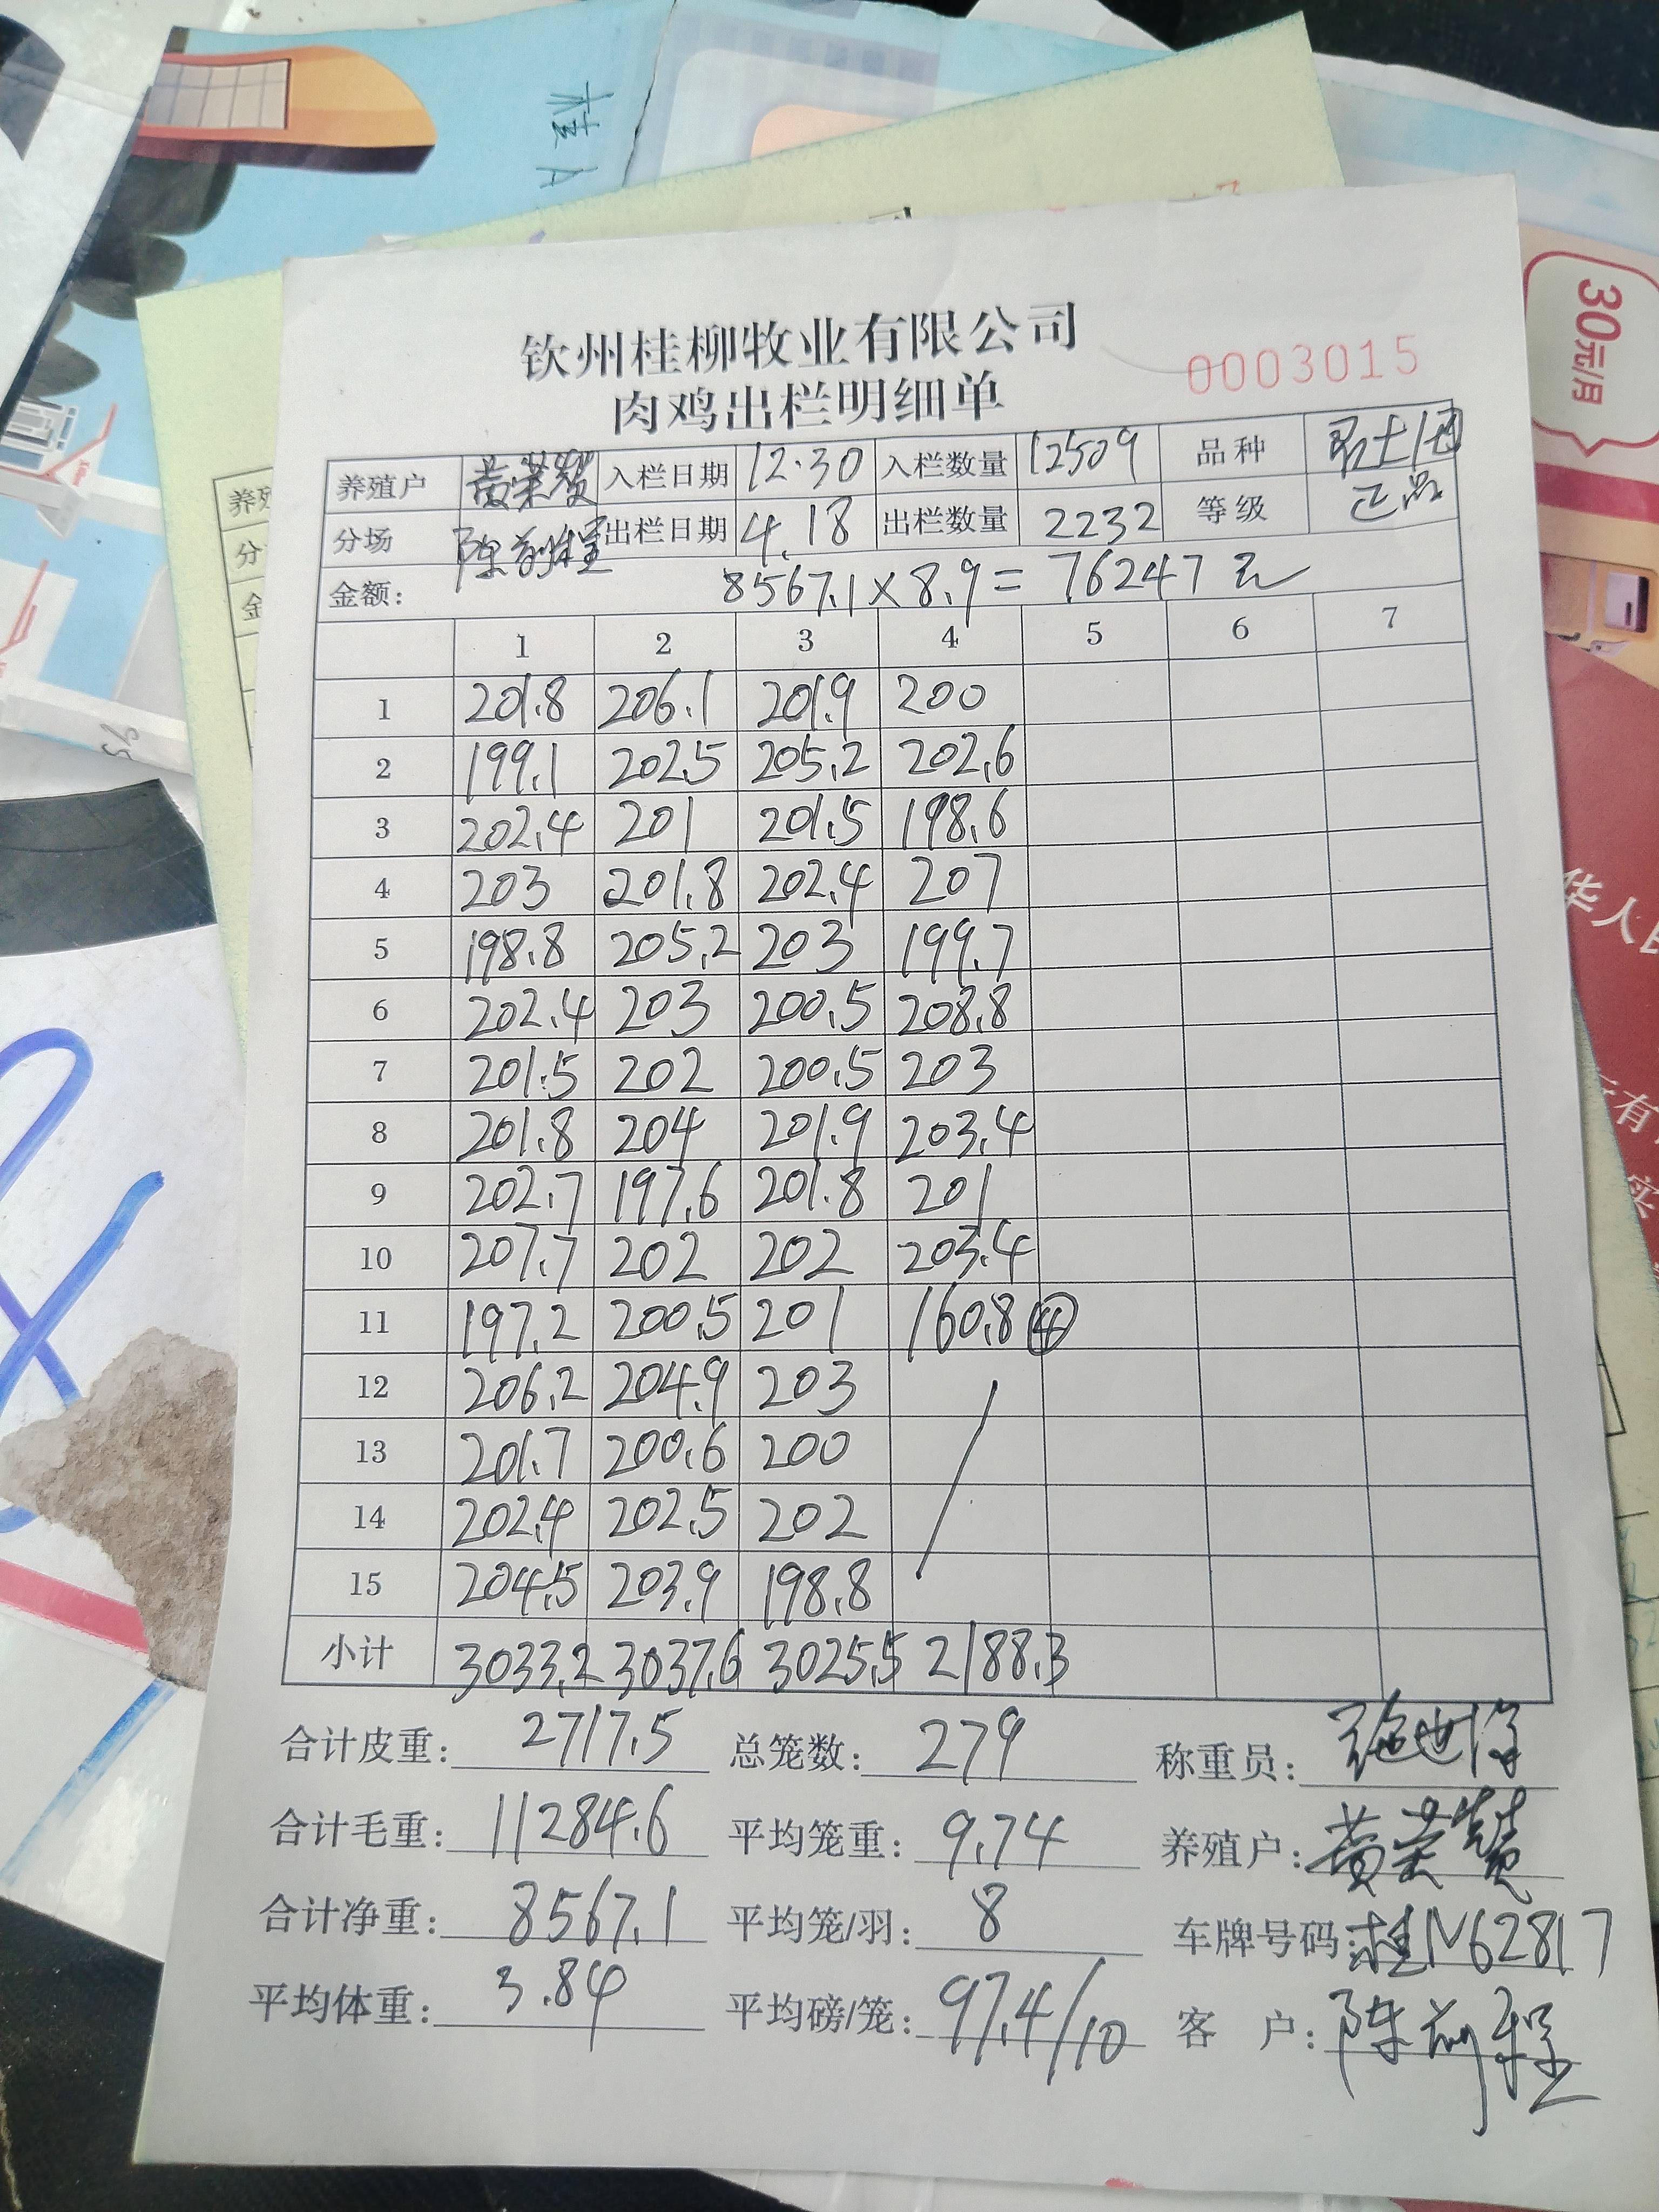 桂A
30元/月
钦州桂柳牧业有限公司
0003015
肉鸡出栏明细单
养殖户 黄荣赞 入栏日期 12.30 入栏数量 12509 品种
分场 陈前程 出栏日期 4.18 出栏数量 2232 等级 正品
金额: 8567.1×8.9=76247元
1 2 3 4 5 6 7
1 201.8 206.1 201.9 200
2 199.1 202.5 205.2 202.6
3 202.4 201 201.5 198.6
4 203 201.8 202.4 207
5 198.8 205.2 203 199.7
6 202.4 203 200.5 208.8
7 201.5 202 200.5 203
8 201.8 204 201.9 203.4
9 202.7 197.6 201.8 201
10 207.7 202 202 203.4
11 197.2 200.5 201 160.8 ④
12 206.2 204.9 203
13 201.7 200.6 200
14 202.4 202.5 202
15 204.5 203.9 198.8
小计 3033.2 3037.6 3025.5 2188.3
合计皮重: 2717.5 总笼数: 279 称重员:
合计毛重: 11284.6 平均笼重: 9.74 养殖户: 黄荣赞
合计净重: 8567.1 平均笼/羽: 8 车牌号码: 桂N62817
平均体重: 3.84 平均磅/笼: 97.4/10 客 户: 陈前程
华人民